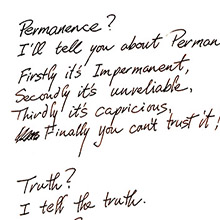 Permanence?
I'll tell you about Perman
Firstly it's Impermanent,
Secondly it's unreliable,
Thirdly it's capricious,
Finally you can't trust it!
Truth?
I tell the truth.